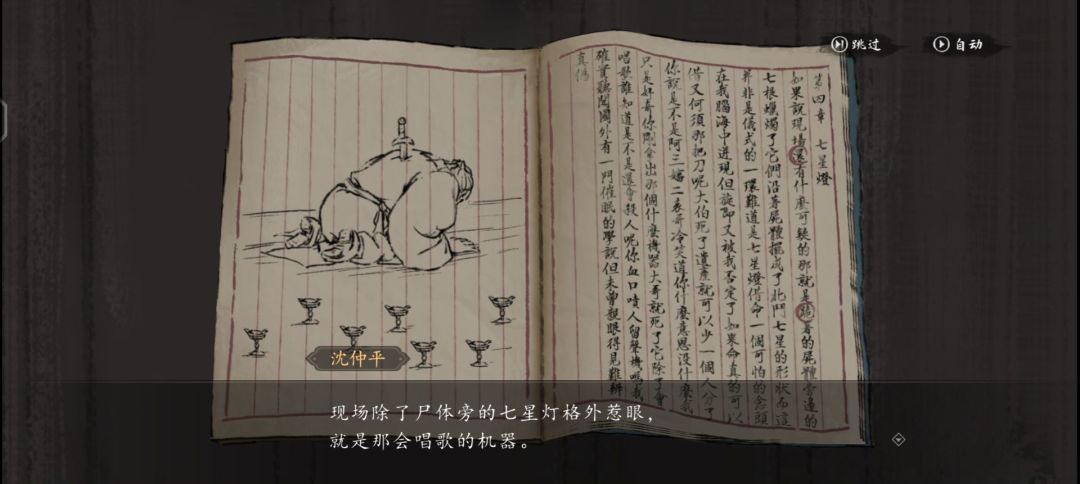 跳过
自动
第四章 七星燈
如果說現場還有什麼可疑的那就是跪著的屍體旁邊的
七根蠟燭了它們沿著屍體擺成了北鬥七星的形狀而這
并非是儀式的一環難道是七星燈借命一個可怕的念頭
在我腦海中迸現但旋即又被我否定了如果命真的可以
借又何須那把刀呢大伯死了遺產就可以少一個人分了
你說是不是阿三嬸二表哥冷笑道你什麼意思没什麼我
只是好奇你剛拿出那個什麼機器大哥就死了它除了會
唱歌誰知道是不是還會殺人呢你血口噴人留聲機嗎我
確實聽聞國外有一門催眠的學說但未曾親眼得見難辨
真偽
沈仲平
现场除了尸体旁的七星灯格外惹眼，
就是那会唱歌的机器。